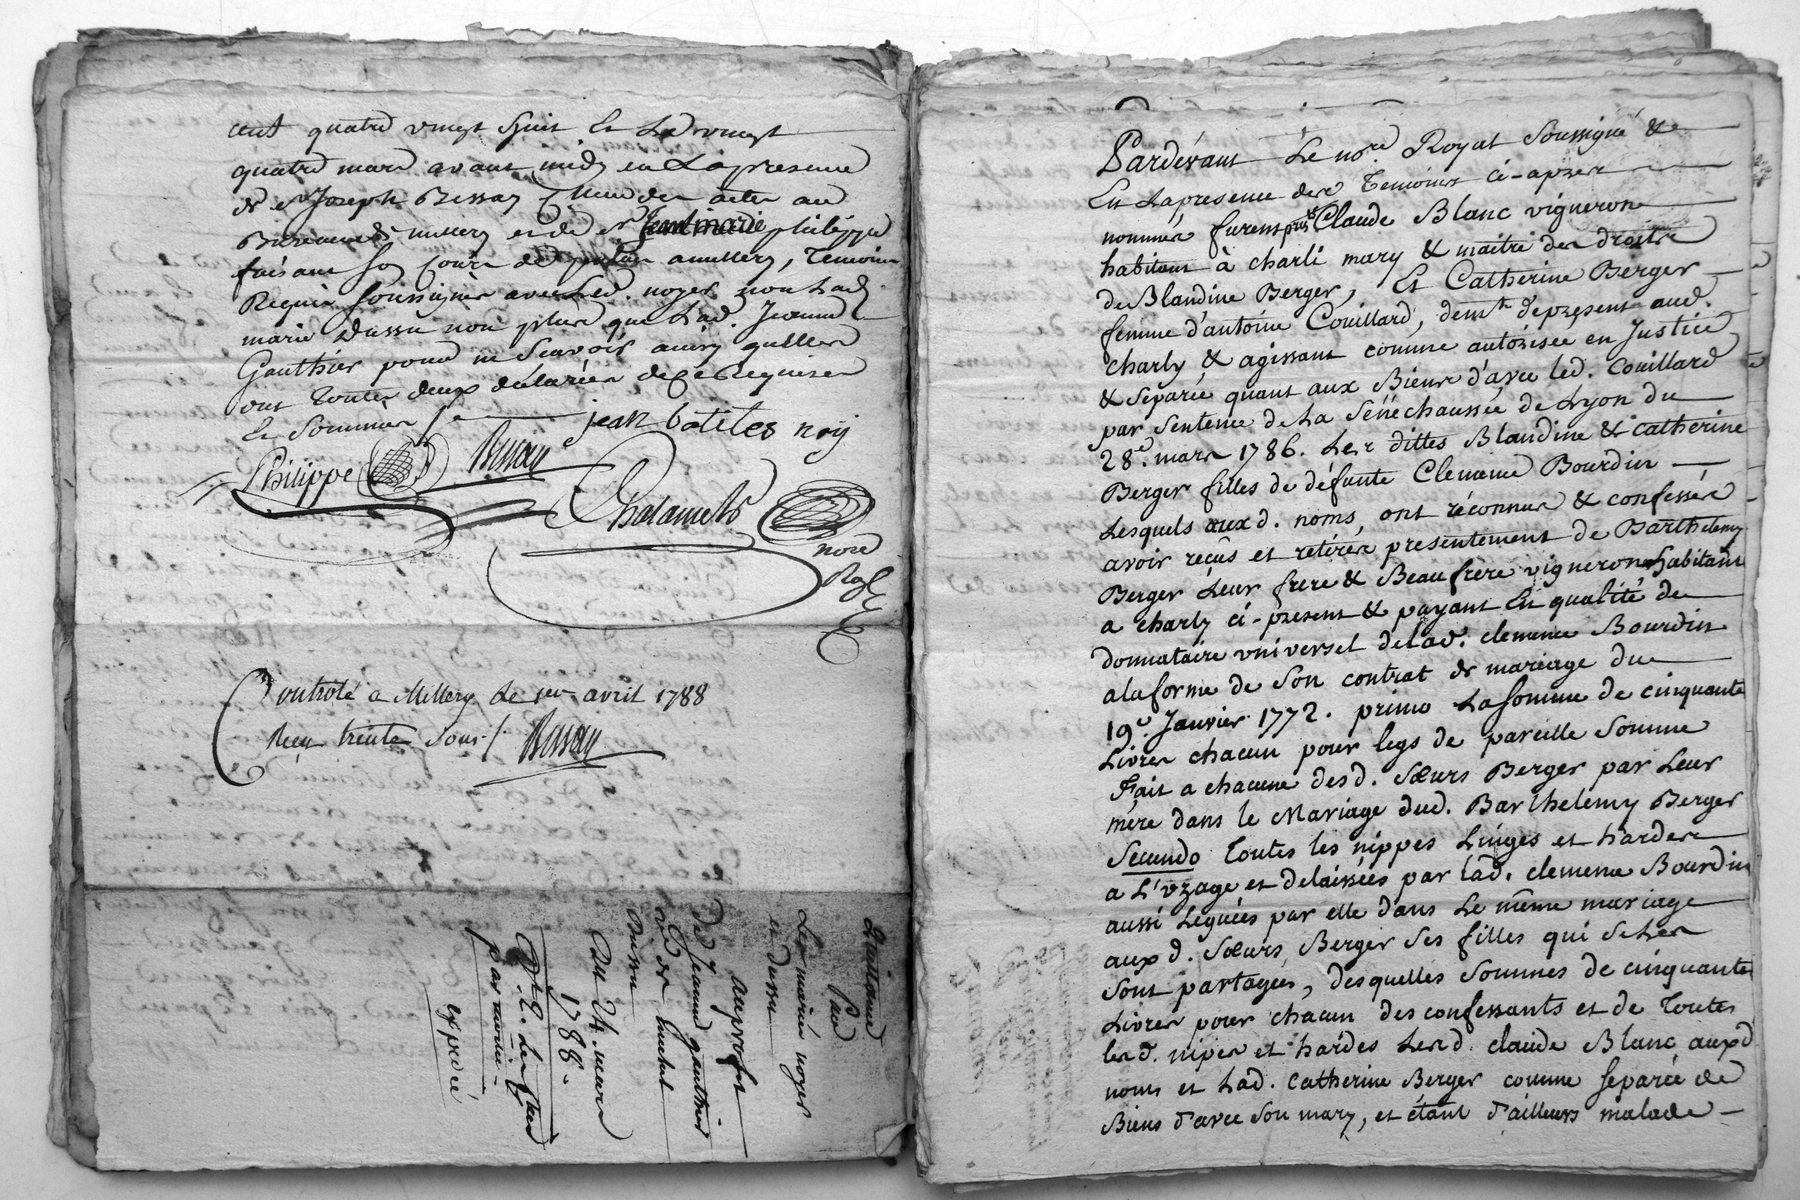 cent quatre vingt huit et le vingt
quatre mars avant midy en la presence
de sr Joseph Bessay Commis des actes au
Bureau de millery et de sr jean marie philippe
faisant sa cour de amillery, Temoins
Requis soussignés avec led. noyer non lad.
marie Dussu non plus que lad. Jeanne
Gauthier pour ne scavoir ainsy quelles
ont toutes deux déclarées de ce Requises
et Sommées
jean batites noiy
Philippe Bessay
Chalamel
nore
Roy
Controlé a Millery le 1er avril 1788
Reçu trente Sous Bessay
Quittance
Par
Les mariés noyer
et dussu
au profit
De Jeanne gauthier
Dussu
Du 24. mars
1788.
par moitié.
expédié
Pardévant Le nore. Royal Soussigné &
En la presence des Temoins ci-après
nommés furent pnts Claude Blanc vigneron
habitant à charli mary & maitre des droits
de Blandine Berger, Et Catherine Berger
femme d'antoine Couillard, demte. dépresent aud.
charly & agissant comme autorisée en Justice
& séparée quant aux Biens d'avec led. Couillard
par sentence de La sénéchaussée de Lyon du
28e. mars 1786. Les dittes Blandine & Catherine
Berger filles de défunte Clemence Bourdin
Lesquels auxd. noms, ont réconnus & confessés
avoir reçus et rétirés présentement de Barthelemy
Berger Leur frere & Beaufrère vigneron habitant
a charly ci-présent & payant En qualité de
donnataire universel de lad. clemence Bourdin
alaforme de Son contrat de mariage du
19e. Janvier 1772. primo La somme de cinquante
Livres chacun pour legs de pareille Somme
Fait a chacune desd. Sœurs Berger par Leur
mère dans le Mariage dud. Barthelemy Berger
Secundo Toutes les nippes Linges et hardes
a L'vzage et delaissées par lad. clemence Bourdin
aussi Leguées par elle dans Le même mariage
aux d. Sœurs Berger Ses filles qui Se Les
Sont partagées, desquelles Sommes de cinquante
Livres pour chacun des confessants et de Toutes
lesd. nipes et hardes Lesd. claude Blanc auxd
noms et Lad. Catherine Berger comme separée de
Biens d'avec Son mary, et étant d'ailleurs malade